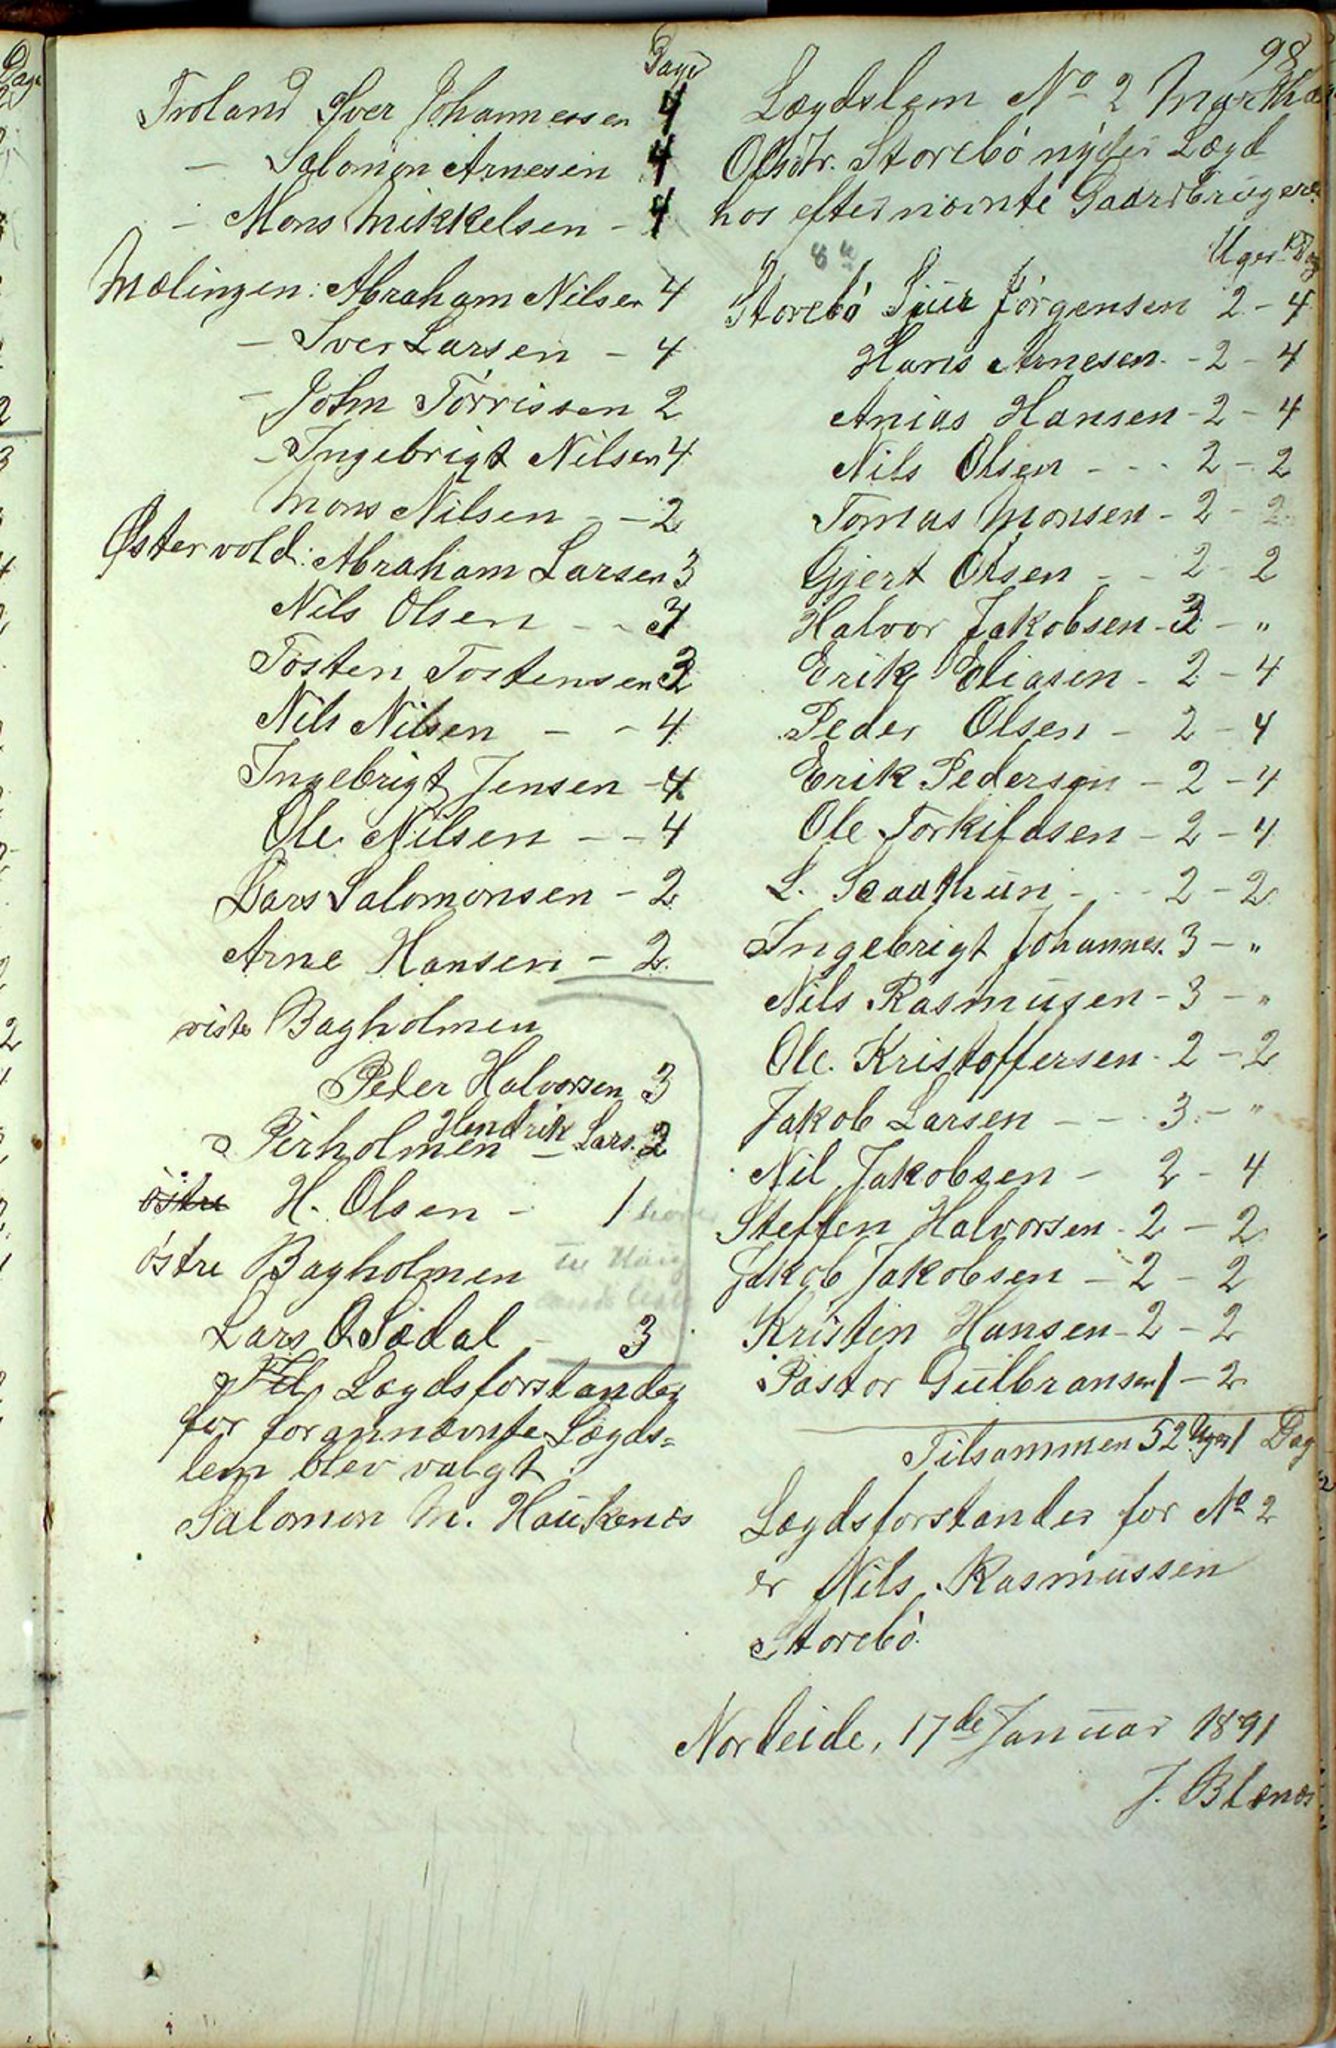 98
Dage
Troland Iver Johannessen 4
— Salomon Arnesen 4
— Mons Mikkelsen – 4
Mælingen: Abraham Nilsen 4
— Iver Larsen – 4
– John Torrissen 2
– Ingebrigt Nilsen 4
Mons Nilsen – – 2
Østervold: Abraham Larsen 3
Nils Olsen – –
Tosten Tostensen
Nils Nilsen – – 4
Ingebrigt Jensen – 4
Ole Nilsen – – 4
Lars Salomonsen – 2
Arne Hansen – 2
Bagholmen
Peder Halvorsen 3
Pirholmen – Hendrik Lars. 2
östre H. Olsen – 1
östre Bagholmen
Lars O Sædal – 3
Til Lægdsforstander
for forannævnte Lægds=
lem blev valgt
Salomon M. Haukenæs
Lægdslem No 2 Martha
Olsdtr. Storebö nyder Lægd
hos efternævnte Gaardbrugere:
Uger Dag
Storebö Sjur Jörgensen 2 – 4
Hans Arnesen – 2 – 4
Anias Hansen – 2 – 4
Nils Olsen – – – 2 – 2
Tomas Monsen – 2 – 2
Gjert Olsen – – 2 – 2
Halvor Jakobsen – 3 – "
Erik Eliasen – 2 – 4
Peder Olsen – 2 – 4
Erik Pedersen – 2 – 4
Ole Torkildsen – 2 – 4
L. – – 2 – 2
Ingebrigt Johannes. 3 – "
Nils Rasmusen – 3 – "
Ole Kristoffersen – 2 – 2
Jakob Larsen – – 3 – "
Nil Jakobsen – 2 – 4
Steffen Halvorsen – 2 – 2
Jakob Jakobsen – 2 – 2
Kristin Hansen – 2 – 2
Pastor Gulbransen 1 – 2
Tilsammen 52 Uger 1 Dag
Lægdsforstander for No 2
er Nils Rasmussen
Storebö.
Norleide, 17de Januar 1891
J. Blænæs